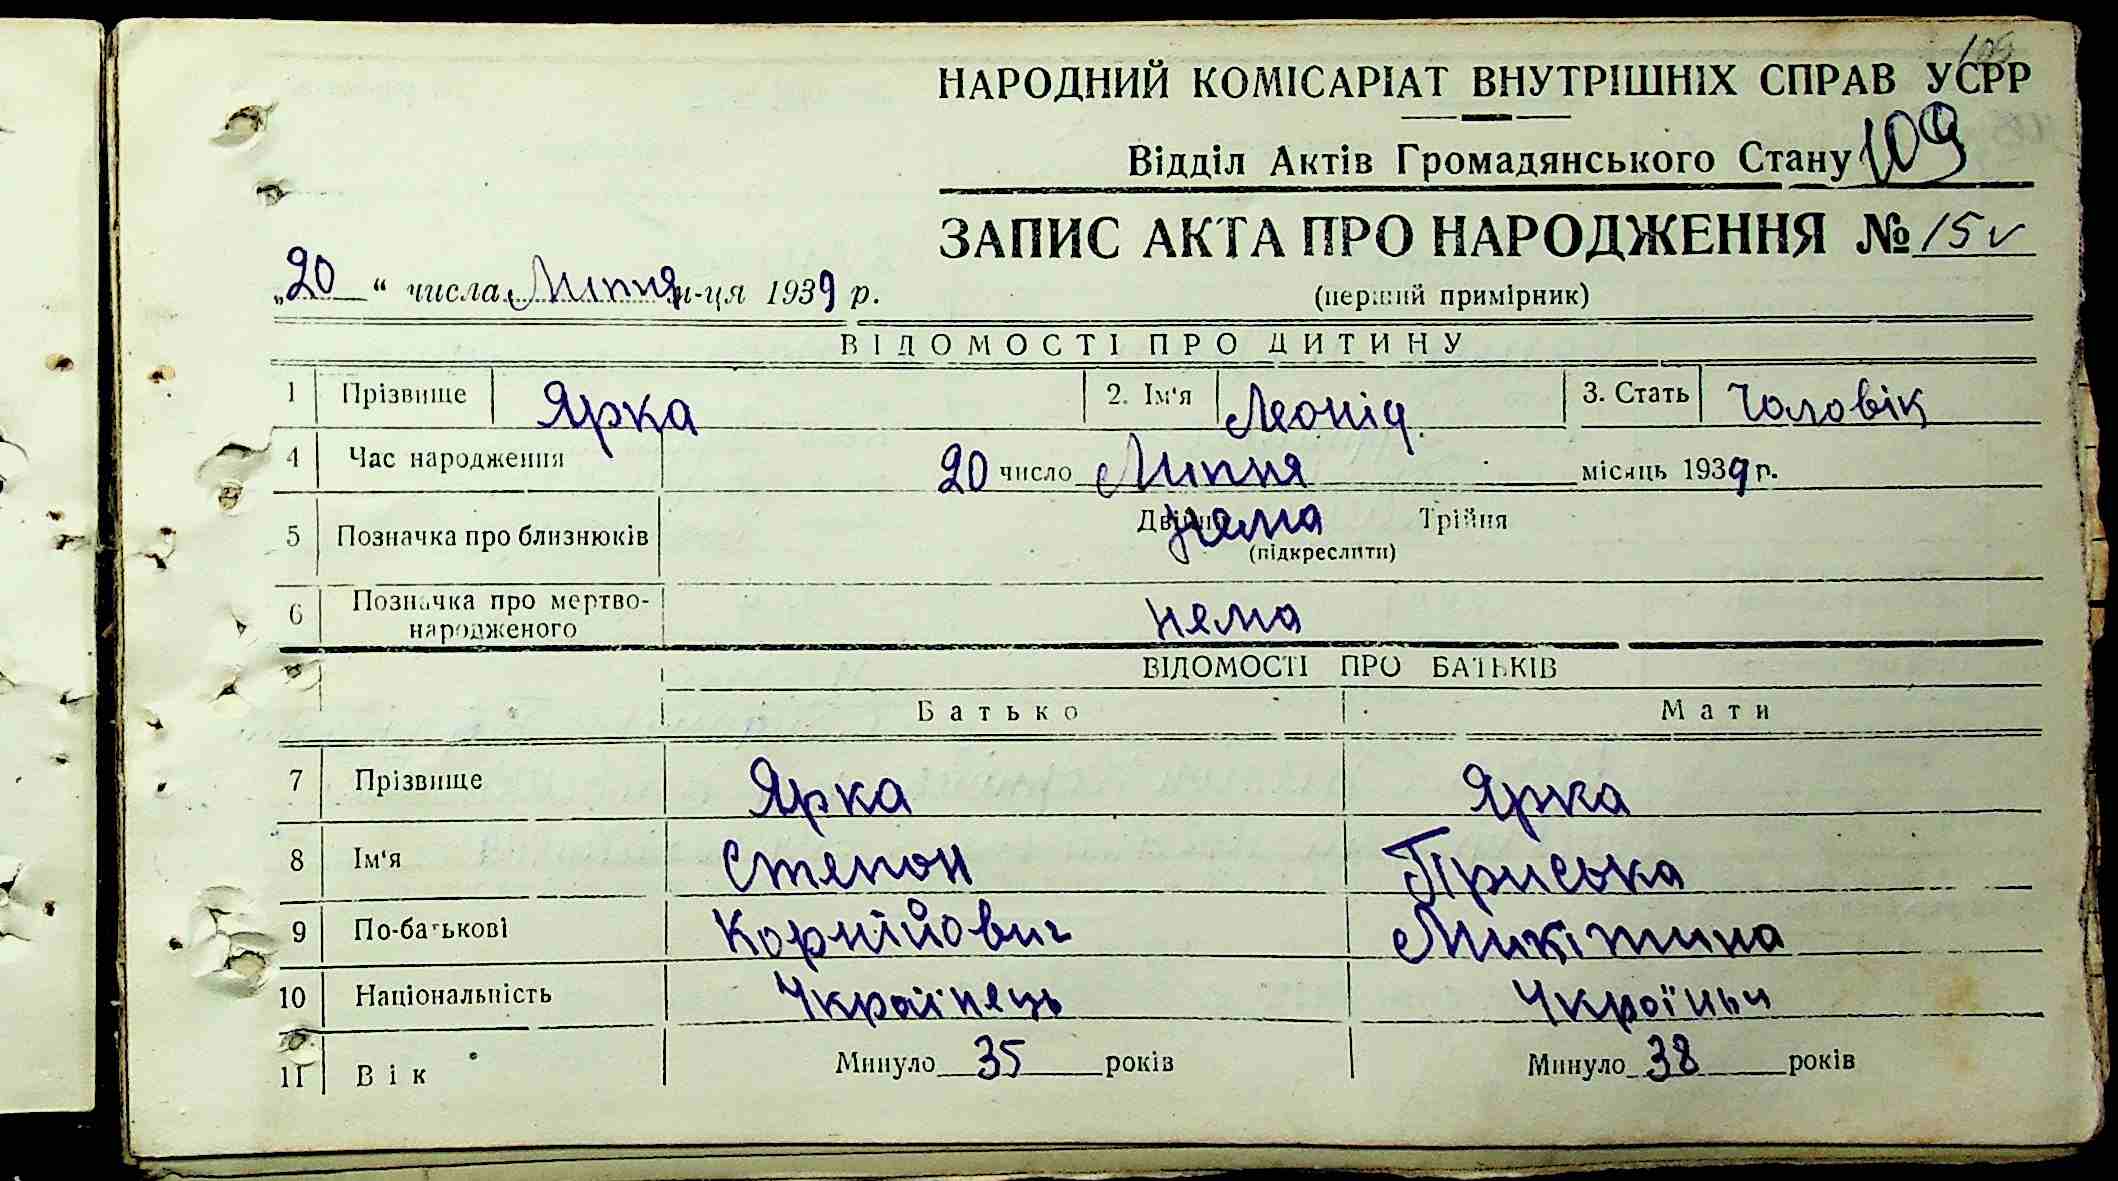 НАРОДНИЙ КОМІСАРІАТ ВНУТРІШНІХ СПРАВ УСРР
Відділ Актів Громадянського Стану 109
ЗАПИС АКТА ПРО НАРОДЖЕННЯ № 15
„20“ числа Липня м-ця 1939 р.
(перший примірник)
ВІДОМОСТІ ПРО ДИТИНУ
1 Прізвище Ярка 2. Ім'я Леонід 3. Стать Чоловік
4 Час народження 20 число Липня місяць 1939 р.
5 Позначка про близнюків Двійня нема Трійня
(підкреслити)
6 Позначка про мертво-
народженого нема
ВІДОМОСТІ ПРО БАТЬКІВ
Батько Мати
7 Прізвище Ярка Ярка
8 Ім'я Степон Пріська
9 По-батькові Корнійович Микітина
10 Національність Українець Україньц
11 Вік Минуло 35 років Минуло 38 років